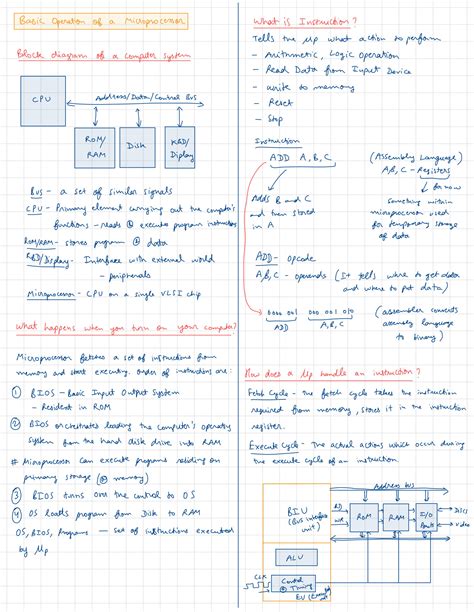 Basic Operation of a Microprocessor
Block diagram of a computer system
CPU
Address/Data/Control Bus
ROM/
RAM
Disk
KBD/
Display
Bus - a set of similar signals
CPU - Primary element carrying out the computer's
functions - reads @ execute program instructions
ROM/RAM - stores program @ data
KBD/Display - Interface with external world
- peripherals
Microprocessor - CPU on a single VLSI chip
What happens when you turn on your computer?
Microprocessor fetches a set of instructions from
memory and start executing. Order of instruction are:
1 BIOS - Basic Input Output System
- Resident in ROM
2 BIOS orchestrates loading the computer's operating
system from the hard disk drive into RAM
# Microprocessor can execute programs residing on
primary storage (@ memory)
3 BIOS turns over the control to OS
4 OS loads program from Disk to RAM
OS, BIOS, Programs - Set of instructions executed
by μp
What is Instruction?
Tells the μp what action to perform
- Arithmetic, Logic Operation
- Read Data from Input Device
- write to memory
- Reset
- Stop
Instruction
ADD A, B, C (Assembly Language)
A,B,C - Registers
for now
Adds B and C
and then stored
in A
something within
microprocessor used
for temporary storage
of data
ADD - opcode
A,B,C - operands (It tells where to get data
and where to put data)
0000 001 000 001 010
ADD A,B,C
(assembler converts
assembly language
to binary)
How does a μp handle an instruction?
Fetch Cycle - The fetch cycle takes the instruction
required from memory, stores it in the instruction
register.
Execute Cycle - The actual actions which occur during
the execute cycle of an instruction.
Address bus
BIU
(Bus interface
unit)
RD
WR
ROM
RAM
I/O
Ports
Disks
video
ALU
CLK
Control
@ Timing
EU